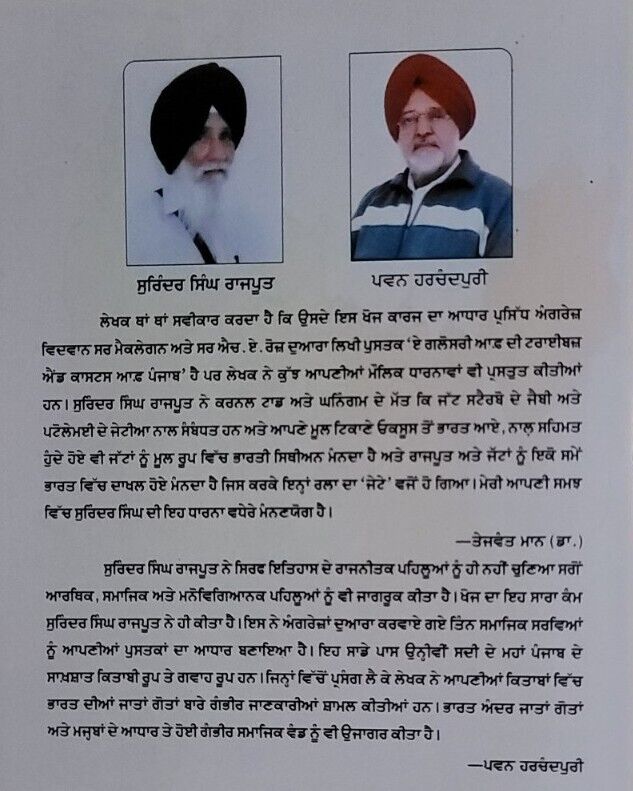 ਸੁਰਿੰਦਰ ਸਿੰਘ ਰਾਜਪੂਤ
ਪਵਨ ਹਰਚੰਦਪੁਰੀ
ਲੇਖਕ ਥਾਂ ਥਾਂ ਸਵੀਕਾਰ ਕਰਦਾ ਹੈ ਕਿ ਉਸਦੇ ਇਸ ਖੋਜ ਕਾਰਜ ਦਾ ਆਧਾਰ ਪ੍ਰਸਿੱਧ ਅੰਗਰੇਜ਼
ਵਿਦਵਾਨ ਸਰ ਮੈਕਲੇਗਨ ਅਤੇ ਸਰ ਐਚ.ਏ.ਰੋਜ਼ ਦੁਆਰਾ ਲਿਖੀ ਪੁਸਤਕ 'ਏ ਗਲੌਸਰੀ ਆਫ਼ ਦੀ ਟਰਾਈਬਜ਼
ਐਂਡ ਕਾਸਟਸ ਆਫ਼ ਪੰਜਾਬ' ਹੈ ਪਰ ਲੇਖਕ ਨੇ ਕੁੱਝ ਆਪਣੀਆਂ ਮੌਲਿਕ ਧਾਰਨਾਵਾਂ ਵੀ ਪ੍ਰਸਤੁਤ ਕੀਤੀਆਂ
ਹਨ। ਸੁਰਿੰਦਰ ਸਿੰਘ ਰਾਜਪੂਤ ਨੇ ਕਰਨਲ ਟਾਡ ਅਤੇ ਘਨਿੰਗਮ ਦੇ ਮੱਤ ਕਿ ਜੱਟ ਸਟੈਰਬੋ ਦੇ ਜੈਬੀ ਅਤੇ
ਪਟੋਲੇਮਈ ਦੇ ਜੇਟੀਆ ਨਾਲ ਸੰਬੰਧਤ ਹਨ ਅਤੇ ਆਪਣੇ ਮੂਲ ਟਿਕਾਣੇ ਓਕਸੂਸ ਤੋਂ ਭਾਰਤ ਆਏ, ਨਾਲ ਸਹਿਮਤ
ਹੁੰਦੇ ਹੋਏ ਵੀ ਜੱਟਾਂ ਨੂੰ ਮੂਲ ਰੂਪ ਵਿੱਚ ਭਾਰਤੀ ਸਿਥੀਅਨ ਮੰਨਦਾ ਹੈ ਅਤੇ ਰਾਜਪੂਤ ਅਤੇ ਜੱਟਾਂ ਨੂੰ ਇਕੋ ਸਮੇਂ
ਭਾਰਤ ਵਿੱਚ ਦਾਖਲ ਹੋਏ ਮੰਨਦਾ ਹੈ ਜਿਸ ਕਰਕੇ ਇਨ੍ਹਾਂ ਰਲਾ ਦਾ 'ਜੇਟੇ' ਵਜੋਂ ਹੋ ਗਿਆ। ਮੇਰੀ ਆਪਣੀ ਸਮਝ
ਵਿੱਚ ਸੁਰਿੰਦਰ ਸਿੰਘ ਦੀ ਇਹ ਧਾਰਨਾ ਵਧੇਰੇ ਮੰਨਣਯੋਗ ਹੈ।
—ਤੇਜਵੰਤ ਮਾਨ (ਡਾ.)
ਸੁਰਿੰਦਰ ਸਿੰਘ ਰਾਜਪੂਤ ਨੇ ਸਿਰਫ ਇਤਿਹਾਸ ਦੇ ਰਾਜਨੀਤਕ ਪਹਿਲੂਆਂ ਨੂੰ ਹੀ ਨਹੀਂ ਚੁਣਿਆ ਸਗੋਂ
ਆਰਥਿਕ, ਸਮਾਜਿਕ ਅਤੇ ਮਨੋਵਿਗਿਆਨਕ ਪਹਿਲੂਆਂ ਨੂੰ ਵੀ ਜਾਗਰੂਕ ਕੀਤਾ ਹੈ। ਖੋਜ ਦਾ ਇਹ ਸਾਰਾ ਕੰਮ
ਸੁਰਿੰਦਰ ਸਿੰਘ ਰਾਜਪੂਤ ਨੇ ਹੀ ਕੀਤਾ ਹੈ। ਇਸ ਨੇ ਅੰਗਰੇਜ਼ਾਂ ਦੁਆਰਾ ਕਰਵਾਏ ਗਏ ਤਿੰਨ ਸਮਾਜਿਕ ਸਰਵਿਆਂ
ਨੂੰ ਆਪਣੀਆਂ ਪੁਸਤਕਾਂ ਦਾ ਆਧਾਰ ਬਣਾਇਆ ਹੈ। ਇਹ ਸਾਡੇ ਪਾਸ ਉਨ੍ਹੀਵੀਂ ਸਦੀ ਦੇ ਮਹਾਂ ਪੰਜਾਬ ਦੇ
ਸਾਖ਼ਸ਼ਾਤ ਕਿਤਾਬੀ ਰੂਪ ਤੇ ਗਵਾਹ ਰੂਪ ਹਨ। ਜਿਨ੍ਹਾਂ ਵਿੱਚੋਂ ਪ੍ਰਸੰਗ ਲੈ ਕੇ ਲੇਖਕ ਨੇ ਆਪਣੀਆਂ ਕਿਤਾਬਾਂ ਵਿੱਚ
ਭਾਰਤ ਦੀਆਂ ਜਾਤਾਂ ਗੋਤਾਂ ਬਾਰੇ ਗੰਭੀਰ ਜਾਣਕਾਰੀਆਂ ਸ਼ਾਮਲ ਕੀਤੀਆਂ ਹਨ। ਭਾਰਤ ਅੰਦਰ ਜਾਤਾਂ ਗੋਤਾਂ
ਅਤੇ ਮਜ੍ਹਬਾਂ ਦੇ ਆਧਾਰ ਤੇ ਹੋਈ ਗੰਭੀਰ ਸਮਾਜਿਕ ਵੰਡ ਨੂੰ ਵੀ ਉਜਾਗਰ ਕੀਤਾ ਹੈ।
—ਪਵਨ ਹਰਚੰਦਪੁਰੀ